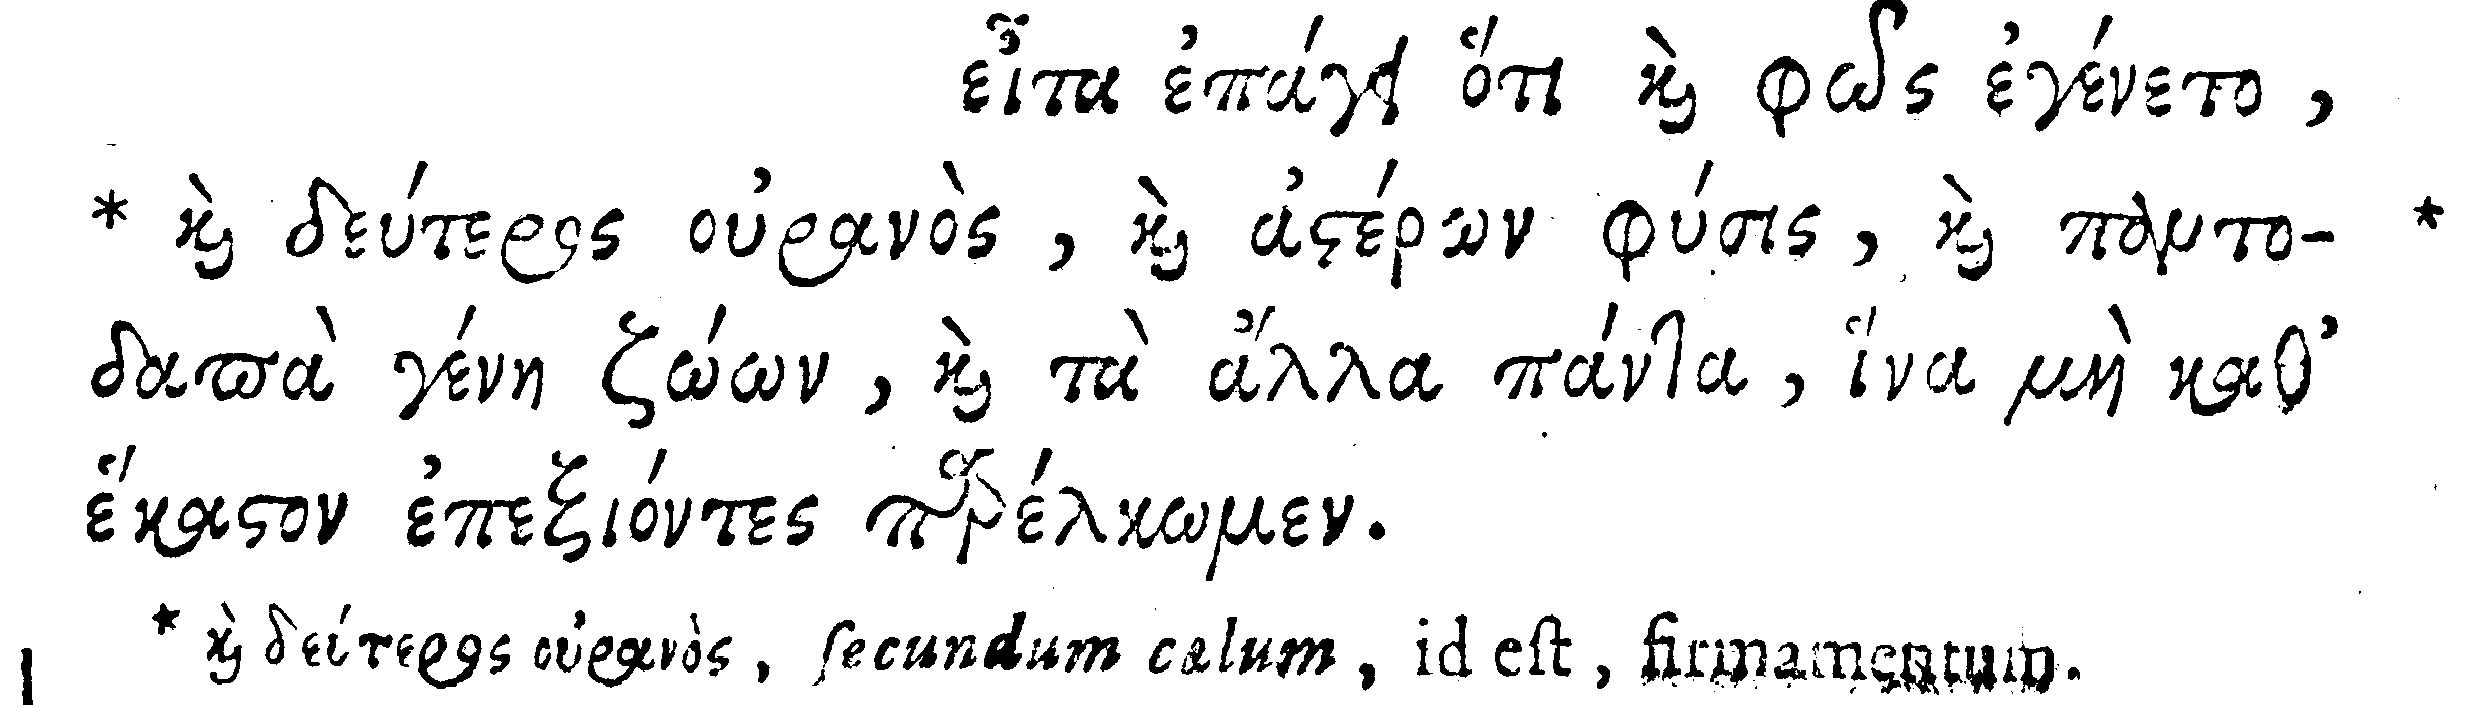 εἶτα ἐπάγει ὅτι ϗ̀ φῶς ἐγένετο,
* ϗ̀ δεύτερος οὐρανὸς, ϗ̀ ἀϛέρων φύσις, ϗ̀ παντο- *
δαπὰ γένη ζώων, ϗ̀ τὰ ἄλλα πάντα, ἵνα μὴ καθ’
ἕκαϛον ἐπεξιόντες παρέλκωμεν.
* ϗ̀ δεύτερος οὐρανὸς, ſecundum cælum, id eſt, firmamentum.